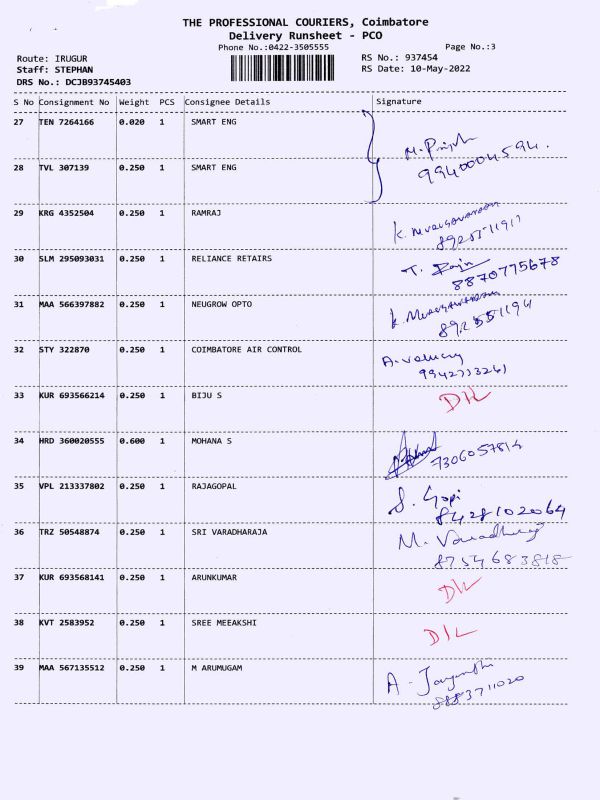 THE PROFESSIONAL COURIERS, Coimbatore
Delivery Runsheet - PCO
Phone No.:0422-3505555
Page No.:3
Route: IRUGUR
RS No.: 937454
Staff: STEPHAN
RS Date: 10-May-2022
DRS No.: DCJB93745403
S No Consignment No Weight PCS Consignee Details Signature
27 TEN 7264166 0.020 1 SMART ENG
9940004594.
28 TVL 307139 0.250 1 SMART ENG
29 KRG 4352504 0.250 1 RAMRAJ
30 SLM 295093031 0.250 1 RELIANCE RETAIRS
8870775678
31 MAA 566397882 0.250 1 NEUGROW OPTO
32 STY 322870 0.250 1 COIMBATORE AIR CONTROL
33 KUR 693566214 0.250 1 BIJU S
34 HRD 360020555 0.600 1 MOHANA S
7306057814
35 VPL 213337802 0.250 1 RAJAGOPAL S. Gopi
8428102064
36 TRZ 50548874 0.250 1 SRI VARADHARAJA
8754683818
37 KUR 693568141 0.250 1 ARUNKUMAR
38 KVT 2583952 0.250 1 SREE MEEAKSHI
39 MAA 567135512 0.250 1 M ARUMUGAM
8883711020